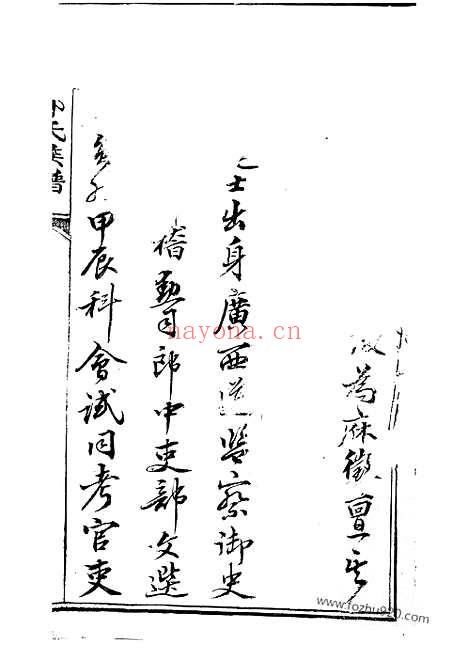 為麻徵亶
士出身廣西道監察御史
稽勳司郎中吏部文選
甲辰科會試同考官吏
氏族譜
nayona.cn
www.fozhu920.com